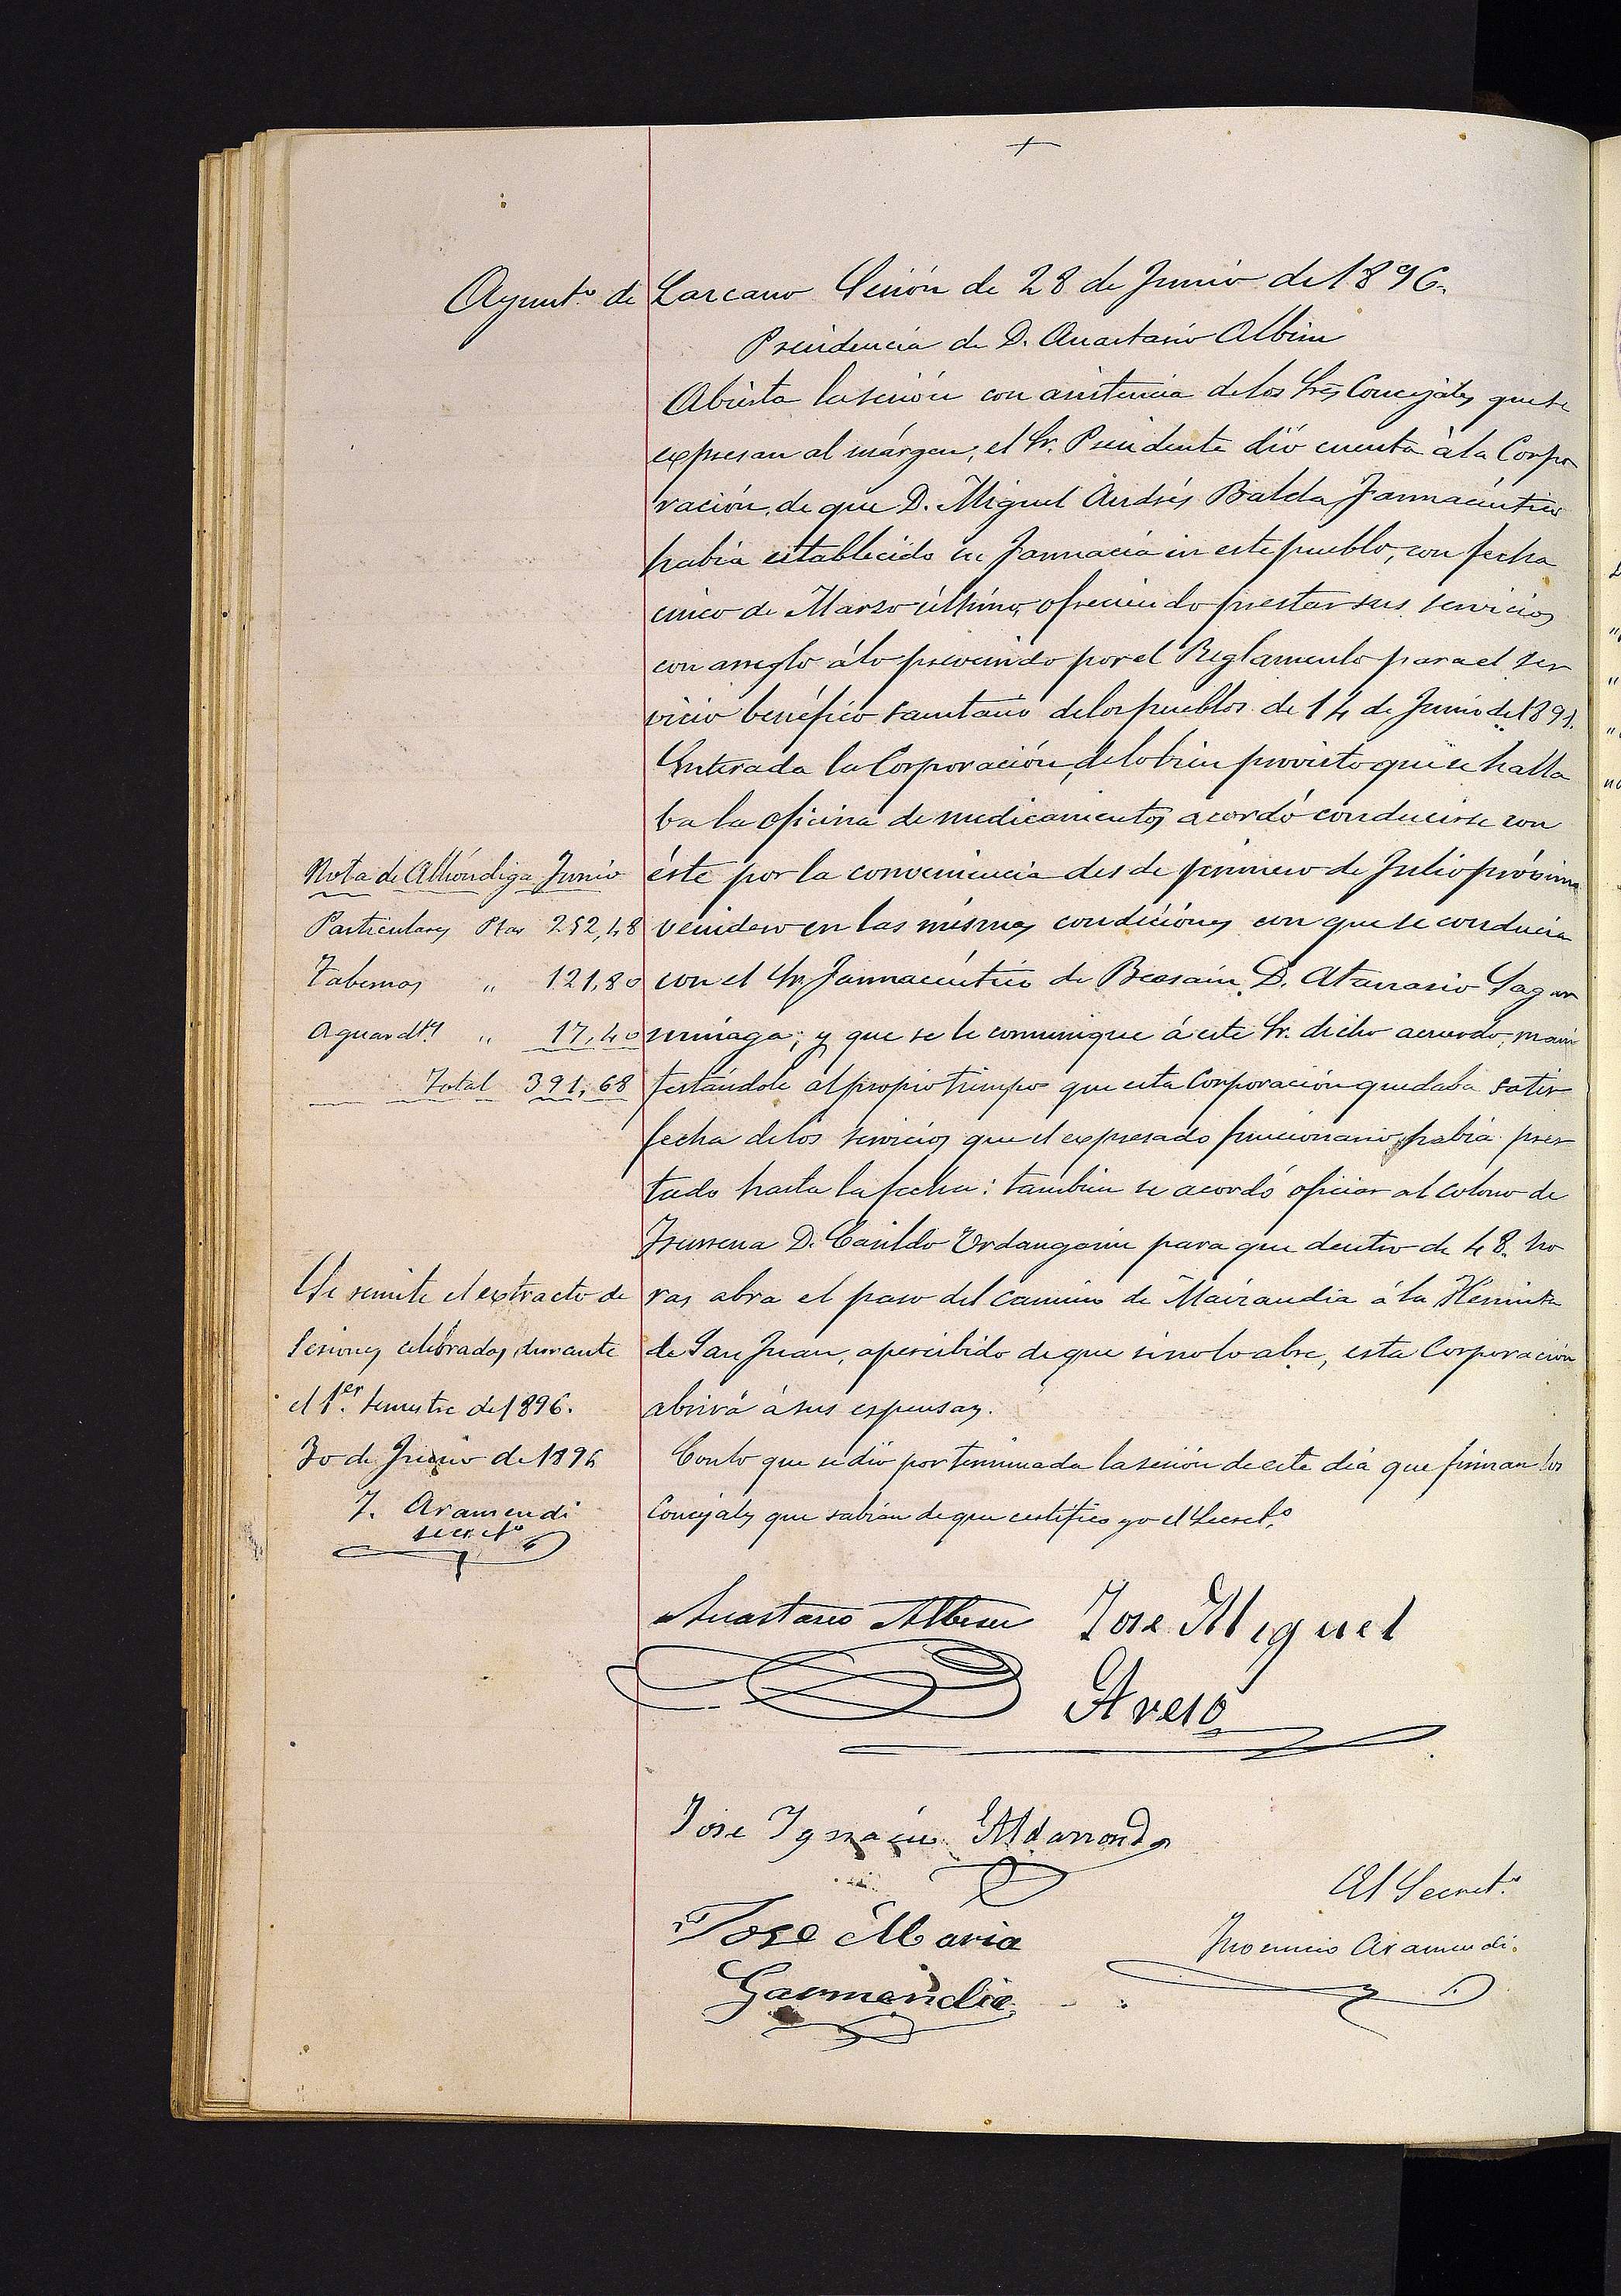 +
Ayunt.º de Lazcano Sesión de 28 de Junio de 1896.
Presidencia de D. Anastasio Albisu
Abierta la sesión con asistencia de los Sres Concejales que se
expresan al márgen, el Sr. Presidente dió cuenta á la Corpo
ración, de que D. Miguel Andrés Balda Farmacéutico
habia establecido su Farmacia en este pueblo, con fecha
cinco de Marzo último, ofreciendo prestar sus servicios
con arreglo á lo prevenido por el Reglamento para el ser
vicio benéfico sanitario de los pueblos de 14 de Junio de 1891.
Enterada la Corporación, de lo bien provisto que se halla
ba la oficina de medicamentos acordó conducirse con
éste por la conveniencia desde primero de Julio próximo
venidero en las mismas condiciones con que se conducia
con el Sr. Farmacéutico de Beasain D. Atanasio Sagar
minaga; y que se le comunique á este Sr. dicho acuerdo, mani
festándole al propio tiempo que esta Corporación quedaba satis
fecha de los servicios que el expresado funcionario habia pres
tado hasta la fecha: tambien se acordó oficiar al colono de
D. Casildo Urdangarin para que dentro de 48 ho
ras abra el paso del camino de Mairandia á la Hermita
de San Juan, apercibido de que si no lo abre, esta Corporación
abrirá á sus espensas.
Con lo que se dio por terminada la sesión de este dia que firman los
Concejales que sabían de que certifico yo el Secret.º
Nota de Alhóndiga Junio
Particulares Ptas 252,48
Tabernas " 121,80
Aguardtes " 17,40
Total 391,68
Se remite el extracto de
Sesiones celebradas durante
el 1er. semestre de 1896.
30 de Junio de 1896
Y. Aramendi
secretº
Anastasio Albisu Jose Miguel
Jose Ygnacio Aldasoro
Jose Maria
Garmendia
El Secret.º
Ynocencio Aramendi.